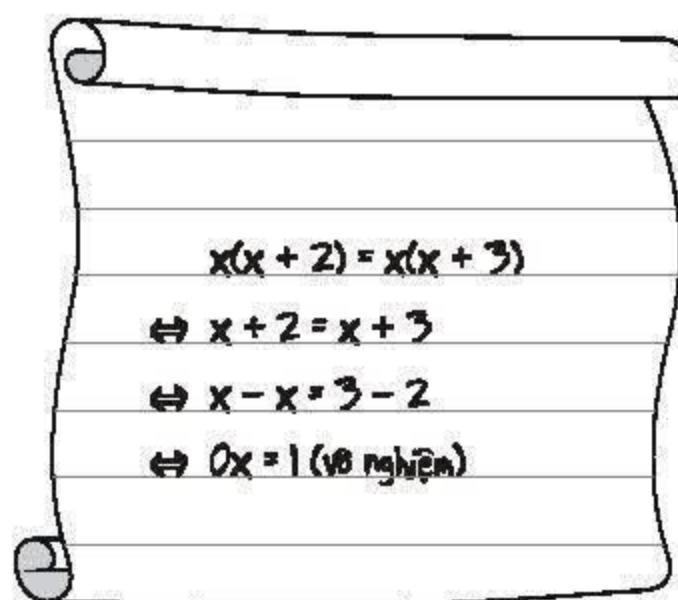 x(x + 2) = x(x + 3)
⇔ x + 2 = x + 3
⇔ x - x = 3 - 2
⇔ 0x = 1 (vô nghiệm)